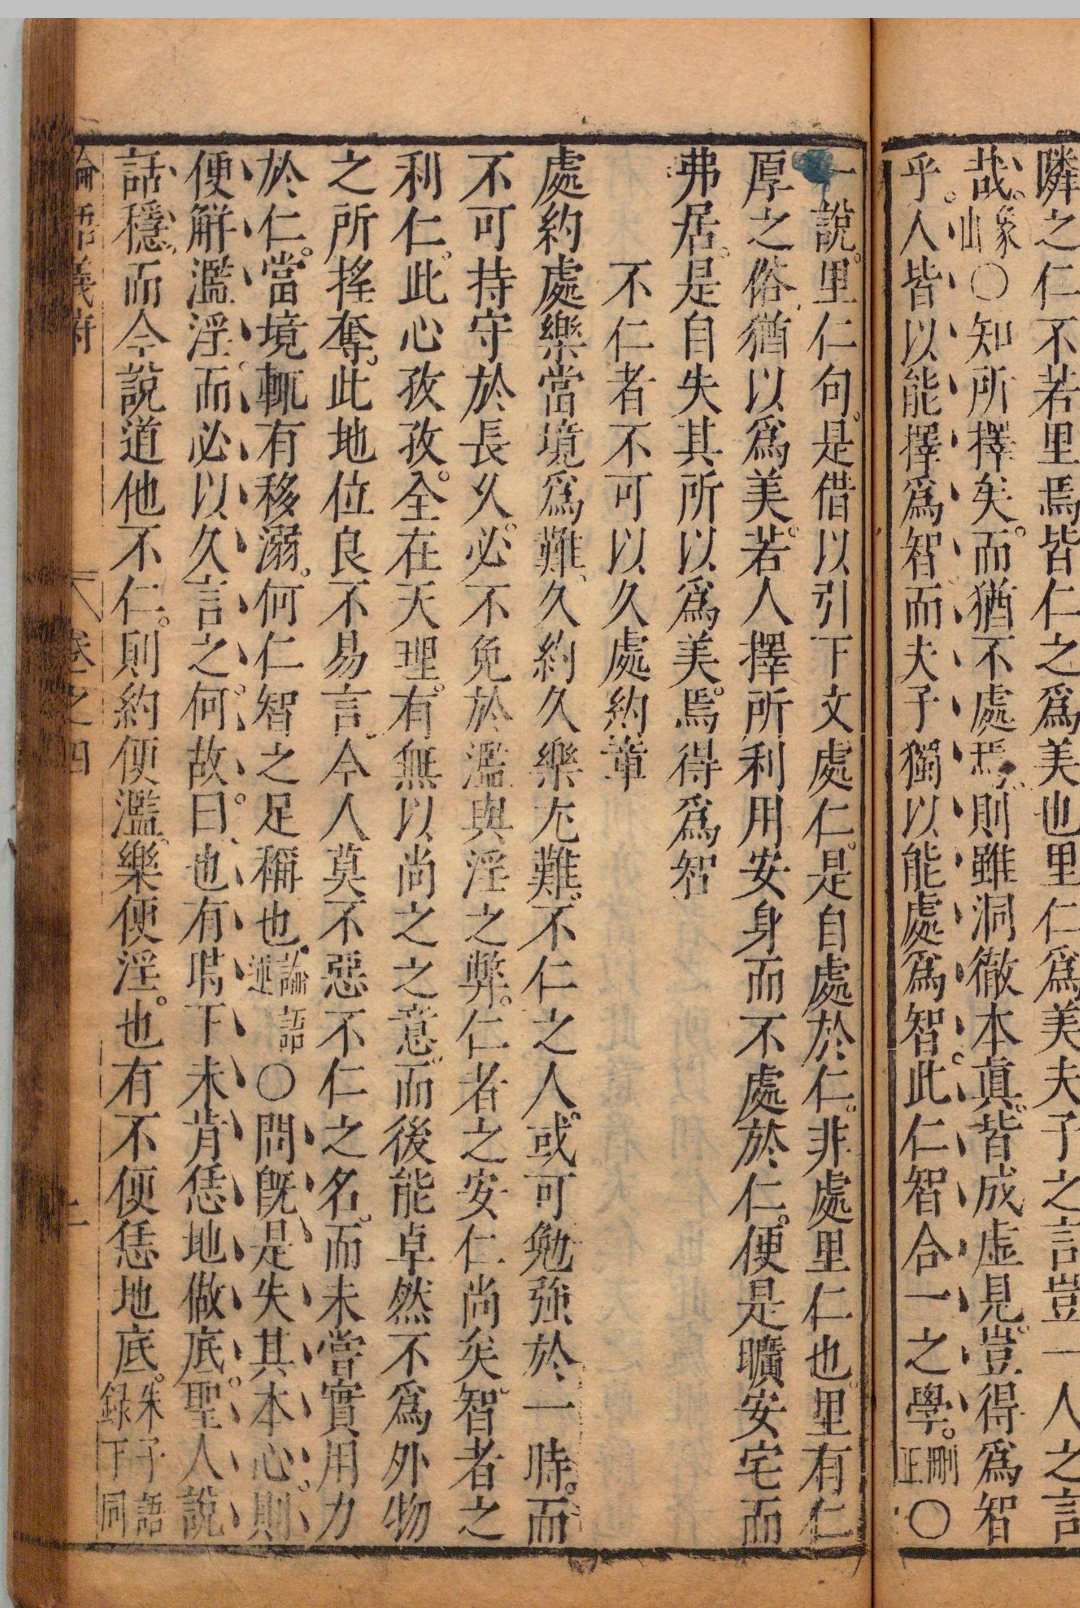 隣之仁不若里焉皆仁之爲美也里仁爲美夫子之言豈一人之言
哉。象山○知所擇矣。而猶不處焉。則雖洞徹本眞。皆成虛見。豈得爲智
乎。人皆以能擇爲智而夫子獨以能處爲智。此仁智合一之學。刪正○
一說。里仁句。是借以引下文處仁。是自處於仁。非處里仁也。里有仁
厚之俗。猶以爲美。若人擇所利用安身而不處於仁。便是曠安宅而
弗居。是自失其所以爲美。焉得爲智
不仁者不可以久處約章
處約處樂當境爲難。久約久樂尤難。不仁之人。或可勉強於一時。而
不可持守於長久。必不免於濫與淫之弊。仁者之安仁尚矣。智者之
利仁。此心孜孜。全在天理。有無以尚之之意。而後能卓然不爲外物
之所搖奪。此地位良不易言。今人莫不惡不仁之名。而未嘗實用力
於仁。當境輒有移溺。何仁智之足稱也。論語述○問旣是失其本心。則
便解濫淫。而必以久言之。何故。曰。也有時下未肯恁地做底。聖人說
話穩。而今說道他不仁。則約便濫。樂便淫。也有不便恁地底。朱子語錄下同
論語義府 卷之四 二